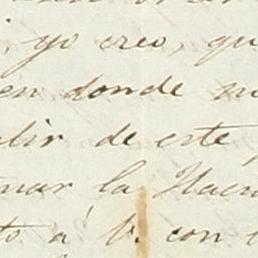 , yo creo, qu
en donde n
lir de este
nar la Hacn
to á V. con